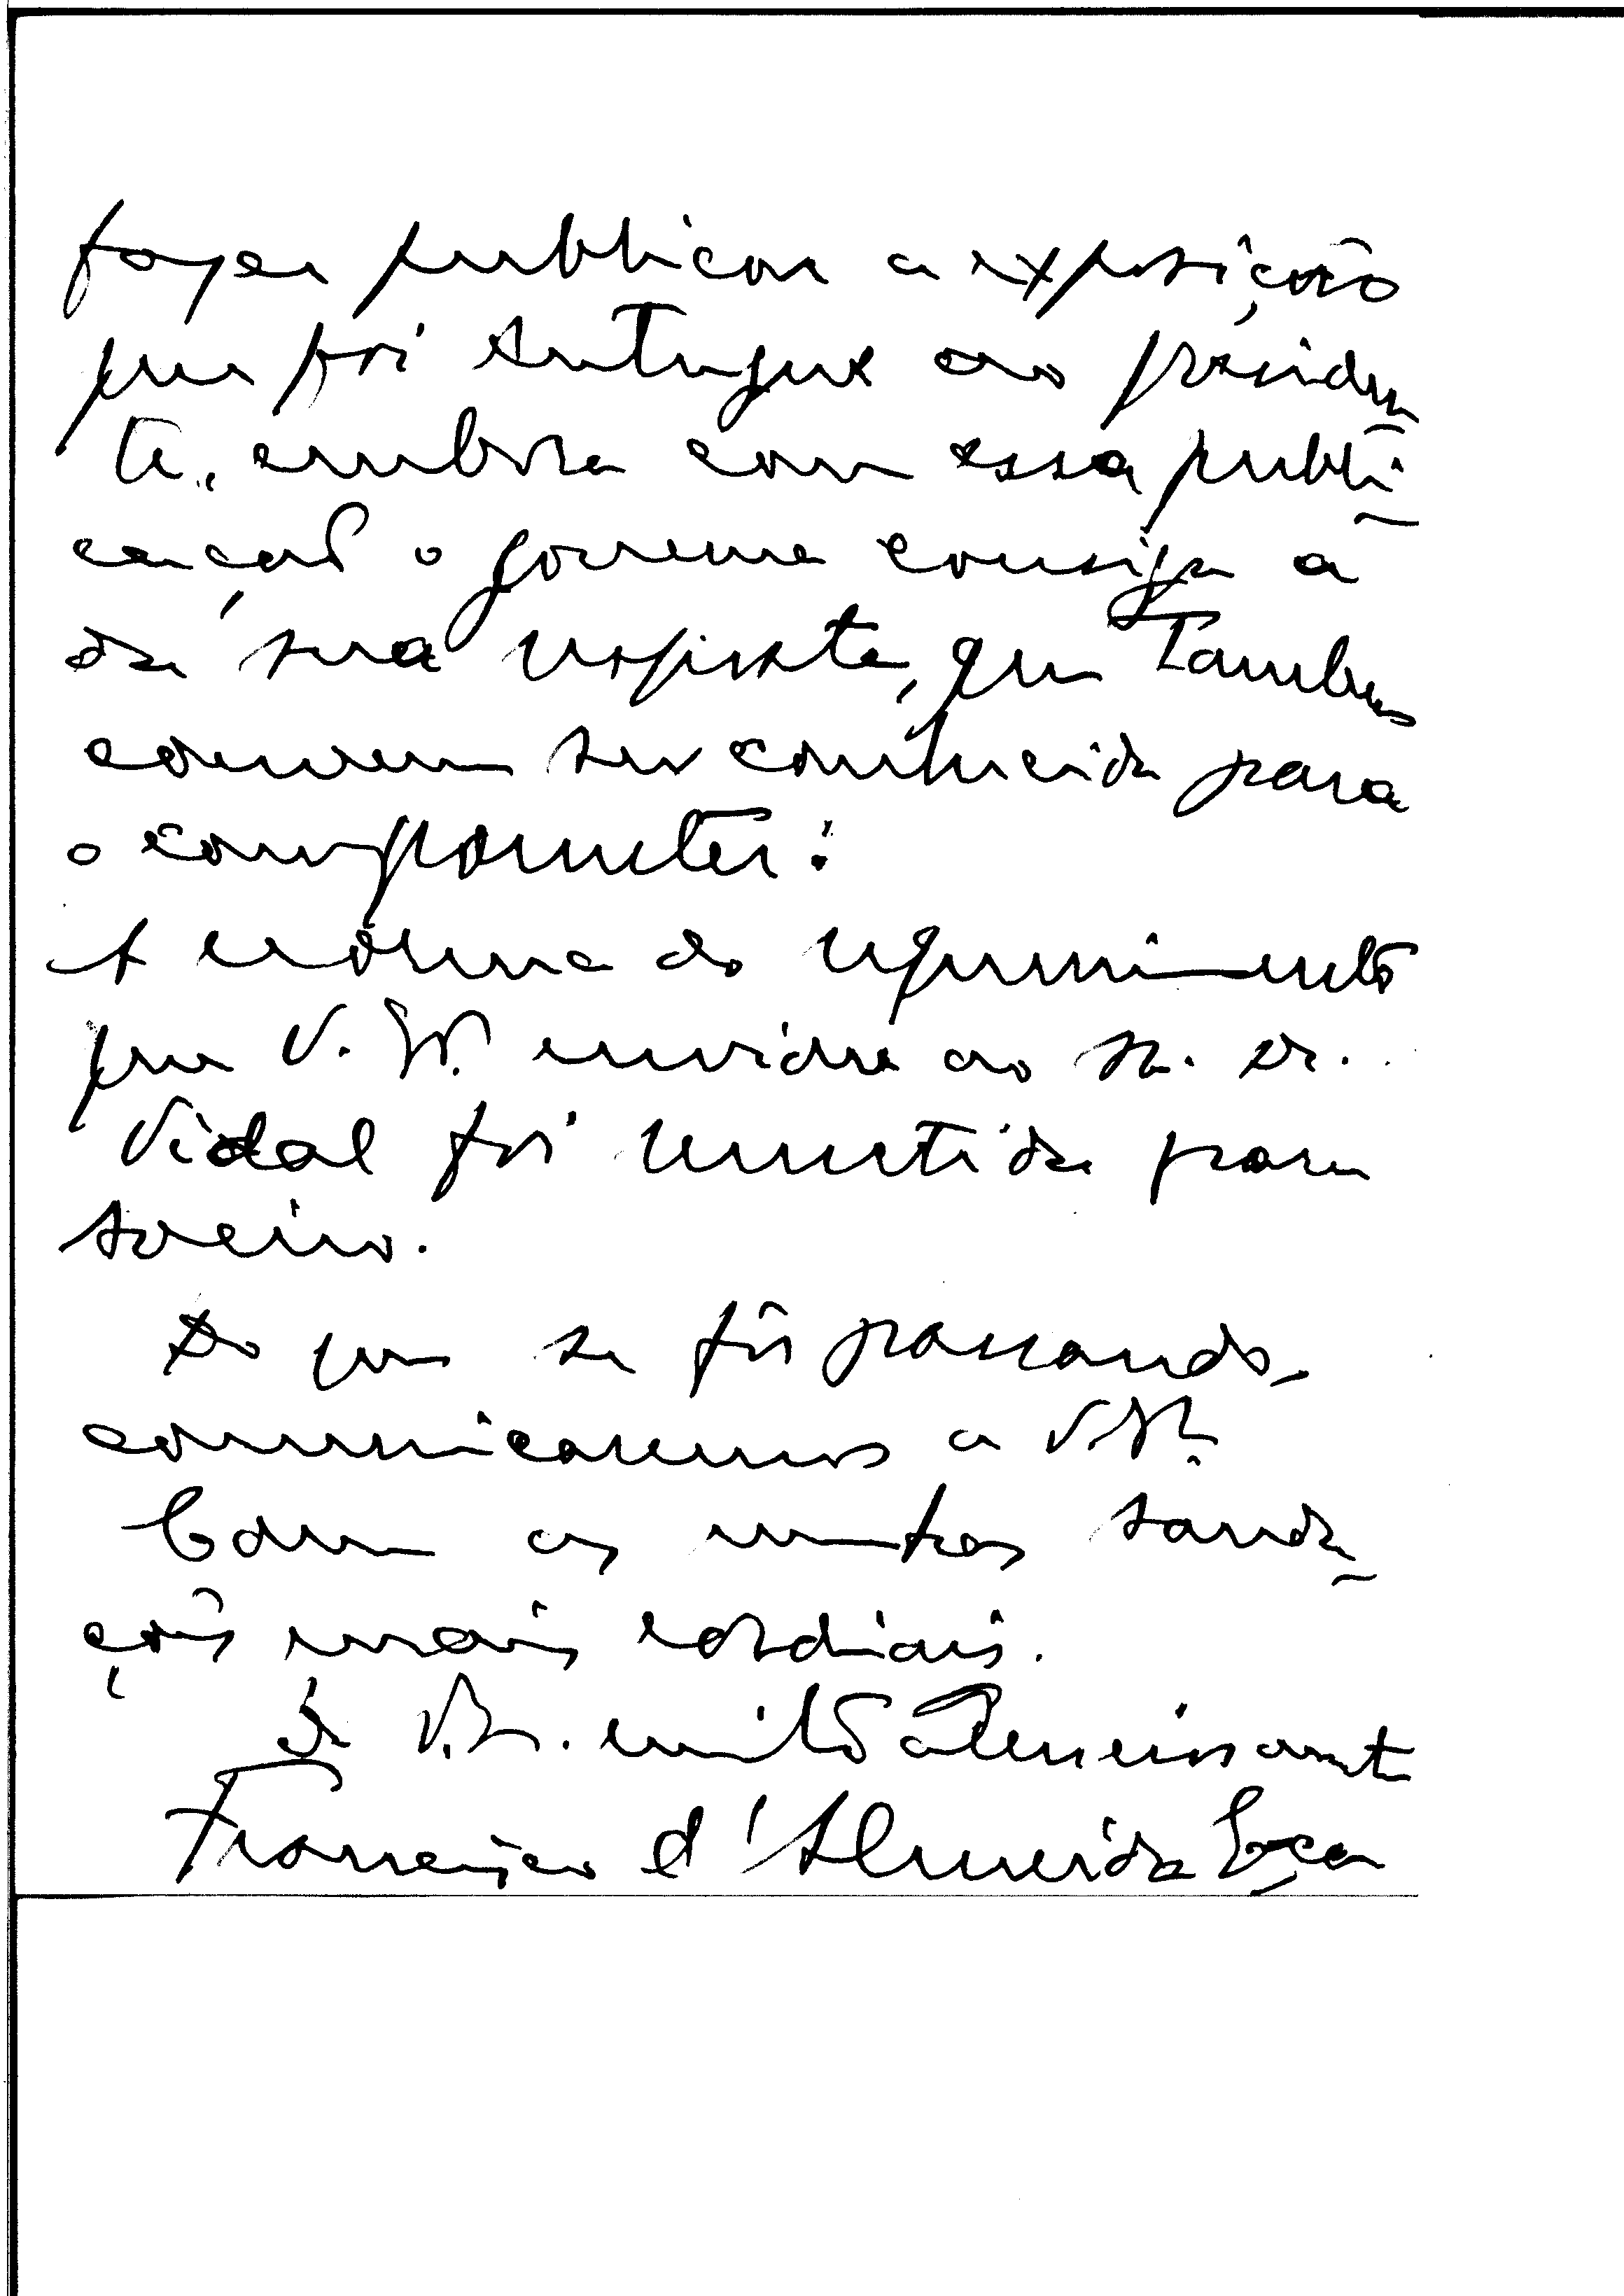 fazer publicar a exposição
que foi entregue ao presiden
te, embora com essa publi
cação o governo consiga a
da sua resposta, que tambem
convem ser conhecida para
o comprometer.
A norma do requerimento
que V. Ex. enviára ao sr. dr.
Vidal foi remetida para
Aveiro.
Do que se fôr passando,
comunicaremos a V. Ex.
Com as nossas sauda
ções mais cordiais.
De V. Ex. muito atenciosamente
Francisco d'Almeida Eça